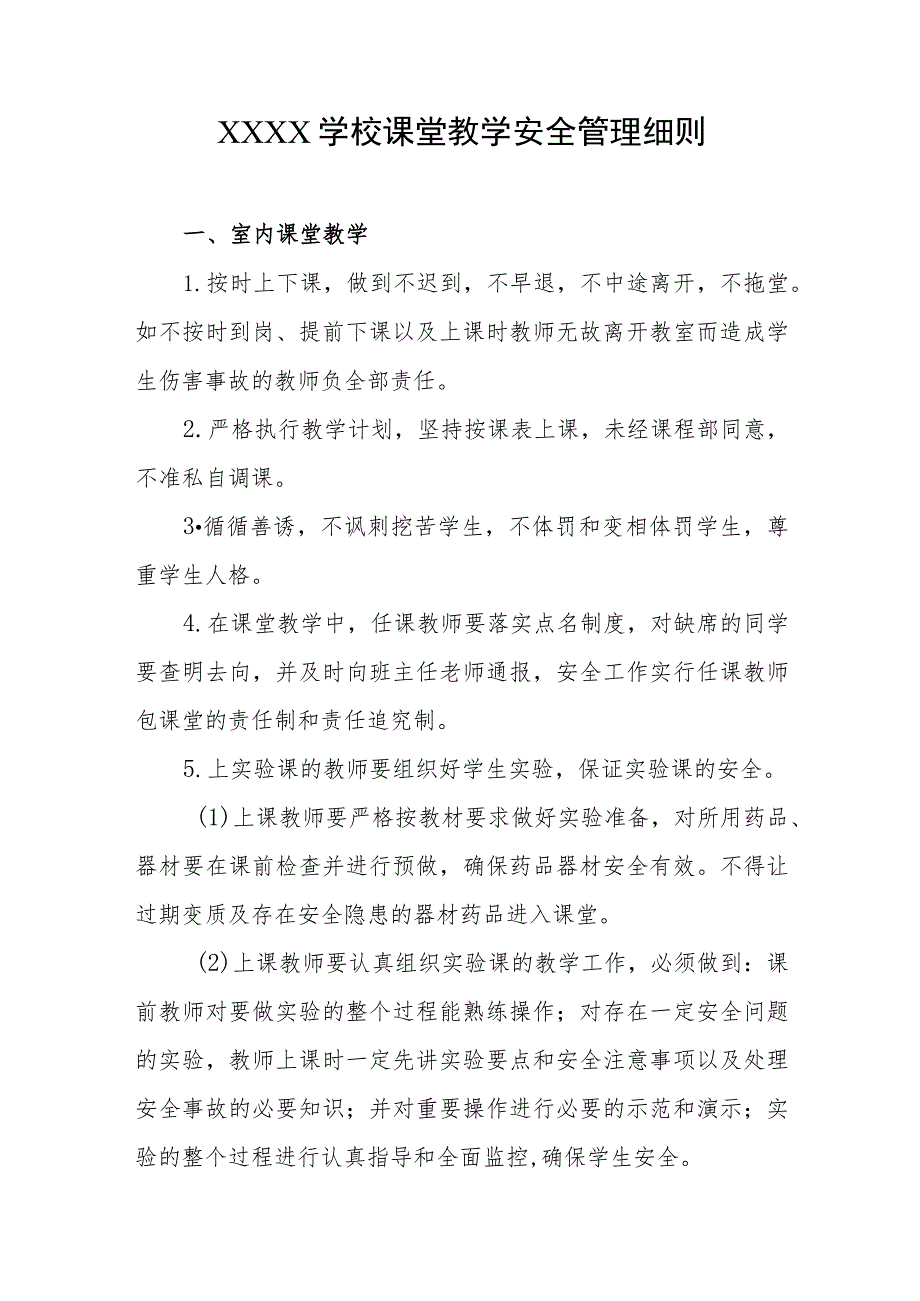 XXXX 学校课堂教学安全管理细则
一、室内课堂教学
1.按时上下课，做到不迟到，不早退，不中途离开，不拖堂。
如不按时到岗、提前下课以及上课时教师无故离开教室而造成学
生伤害事故的教师负全部责任。
2.严格执行教学计划，坚持按课表上课，未经课程部同意，
不准私自调课。
3•循循善诱，不讽刺挖苦学生，不体罚和变相体罚学生，尊
重学生人格。
4.在课堂教学中，任课教师要落实点名制度，对缺席的同学
要查明去向，并及时向班主任老师通报，安全工作实行任课教师
包课堂的责任制和责任追究制。
5.上实验课的教师要组织好学生实验，保证实验课的安全。
(1)上课教师要严格按教材要求做好实验准备，对所用药品、
器材要在课前检查并进行预做，确保药品器材安全有效。不得让
过期变质及存在安全隐患的器材药品进入课堂。
(2)上课教师要认真组织实验课的教学工作，必须做到：课
前教师对要做实验的整个过程能熟练操作；对存在一定安全问题
的实验，教师上课时一定先讲实验要点和安全注意事项以及处理
安全事故的必要知识；并对重要操作进行必要的示范和演示；实
验的整个过程进行认真指导和全面监控,确保学生安全。